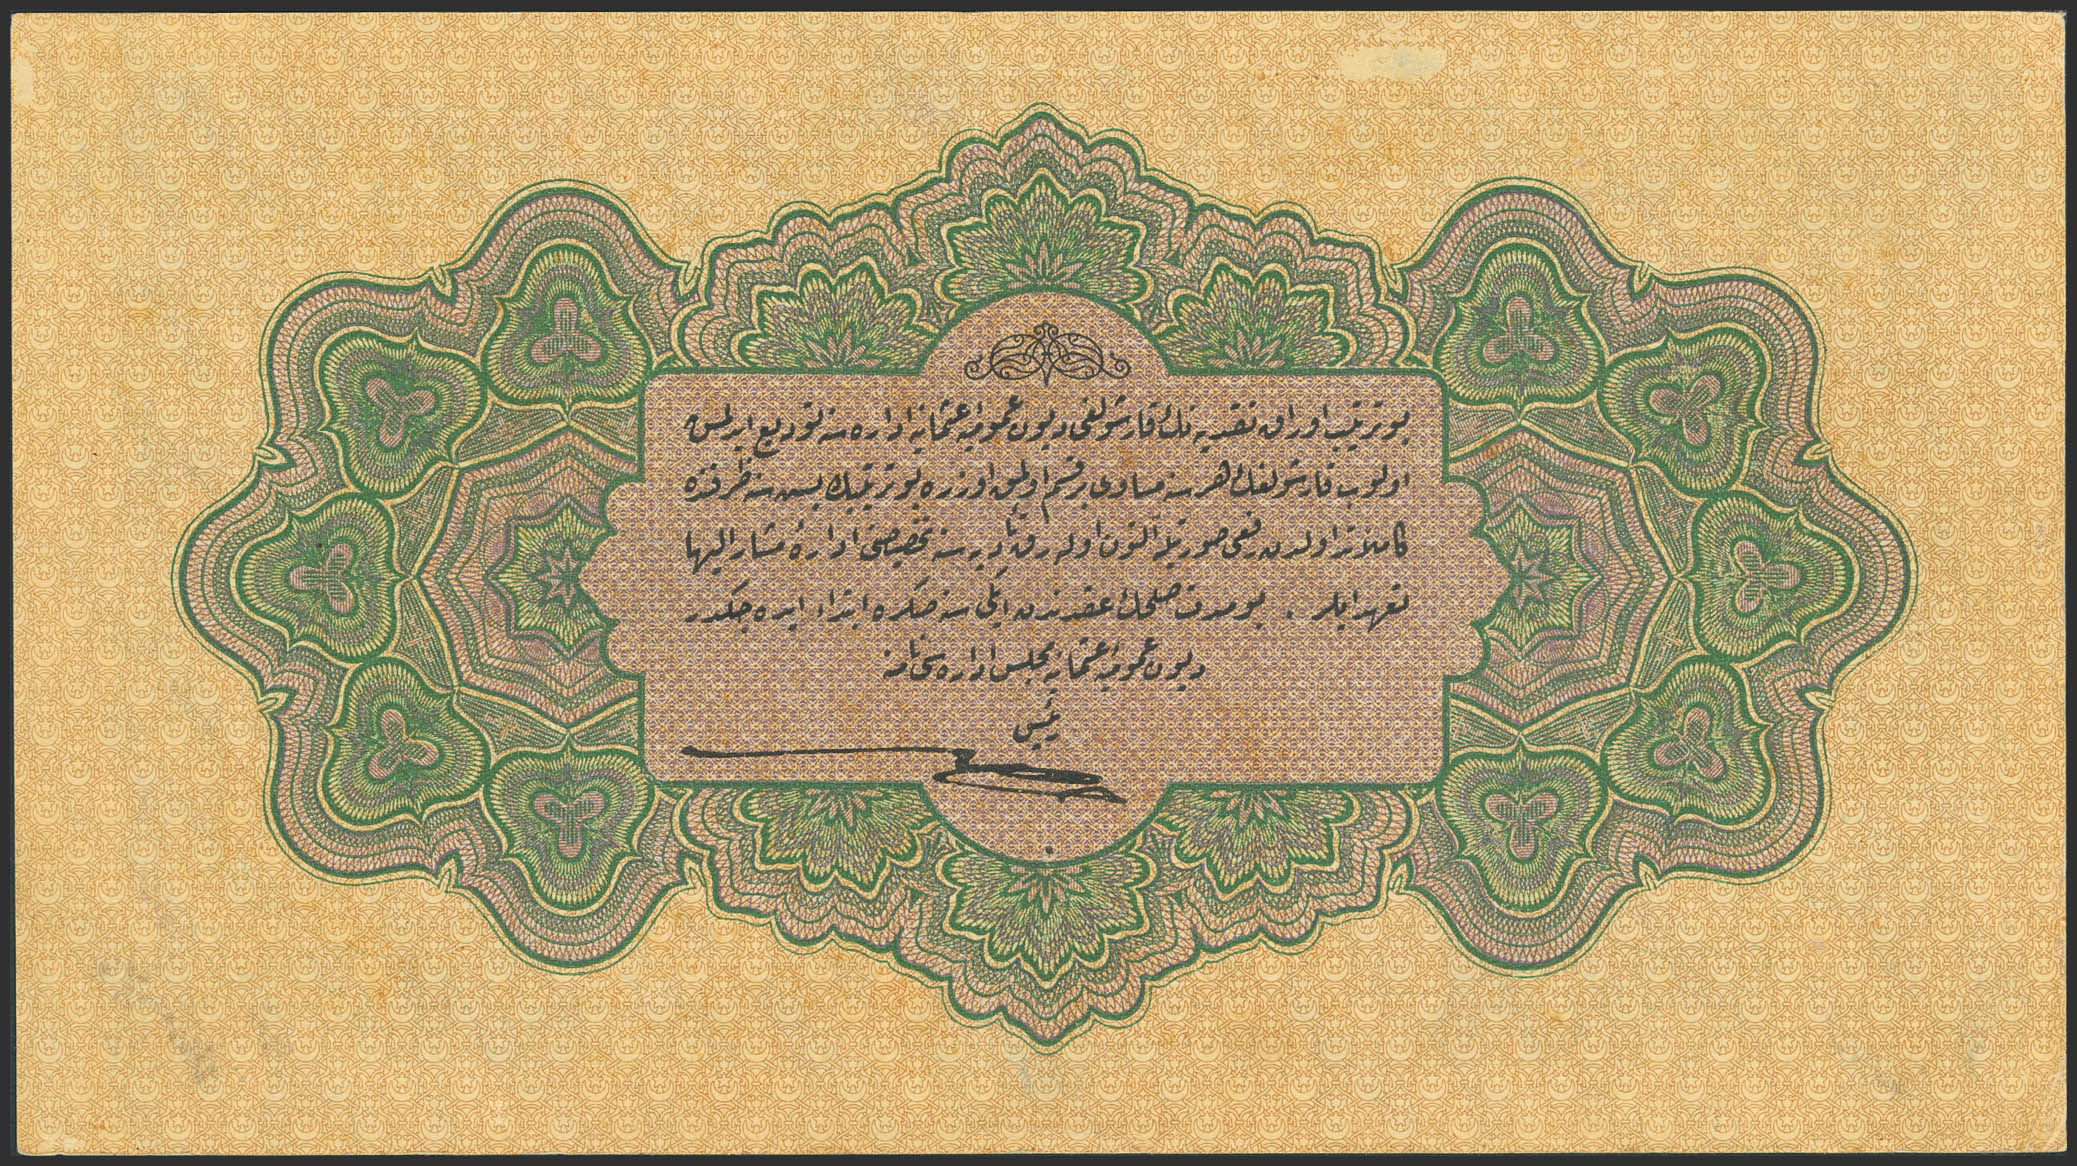 بو ترتیب اوراق نقدیه نك قارشولغی دیون عمومیهٔ عثمانیه اداره سنه تودیع ایدلمش
اولوب قارشولغك هر سنه مساوی بر قسم اولمق اوزره بو ترتیبك بش سنه ظرفنده
كاملاً تداولدن رفعی صورتیله التون اوله رق تأدیه سنه تخصیصنی ادارهٔ مشار الیها
تعهد ایلر . بو مدت صلحك عقدندن ایكی سنه صكره ابتدا ایده جكدر
دیون عمومیهٔ عثمانیه مجلس اداره سی نامنه
رئیسی